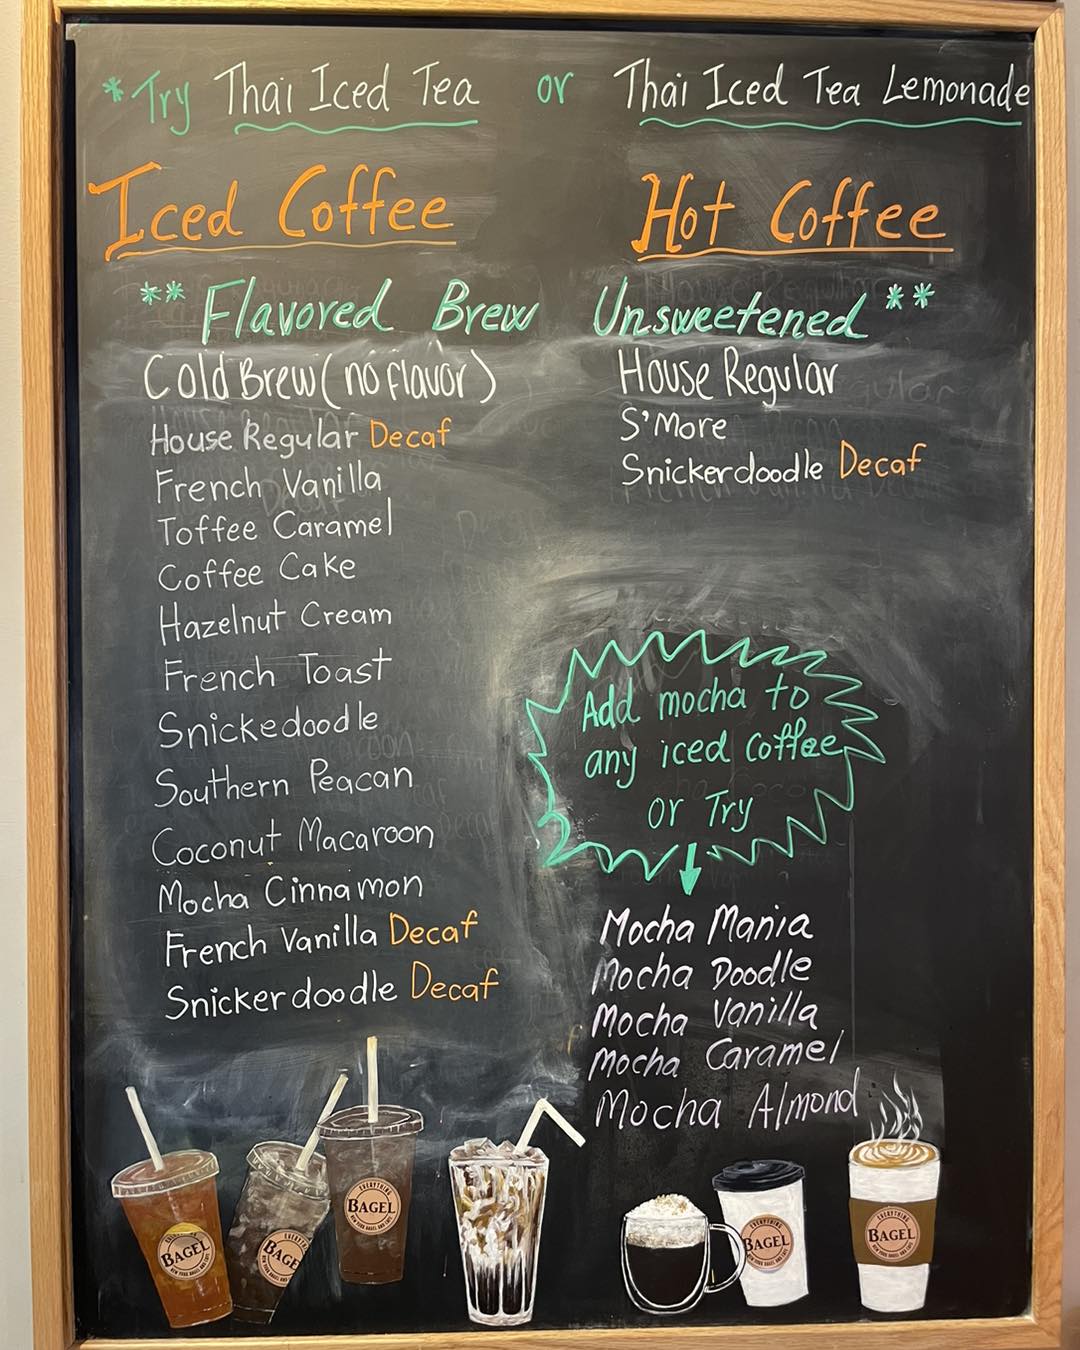 *Try Thai Iced Tea or Thai Iced Tea Lemonade
Iced Coffee
Hot Coffee
** Flavored Brew Unsweetened **
Cold Brew (no flavor)
House Regular Decaf
French Vanilla
Toffee Caramel
Coffee Cake
Hazelnut Cream
French Toast
Snickedoodle
Southern Peacan
Coconut Macaroon
Mocha Cinnamon
French Vanilla Decaf
Snickerdoodle Decaf
House Regular
S'More
Snickerdoodle Decaf
Add mocha to
any iced coffee
or Try
Mocha Mania
Mocha Doodle
Mocha Vanilla
Mocha Caramel
Mocha Almond
BAGEL
BAGE
EVERYTHING
BAGEL
NEW YORK BAGEL AND CAFE
EVERYTHING
BAGEL
EVERYTHING
BAGEL
NEW YORK BAGEL AND CAFE